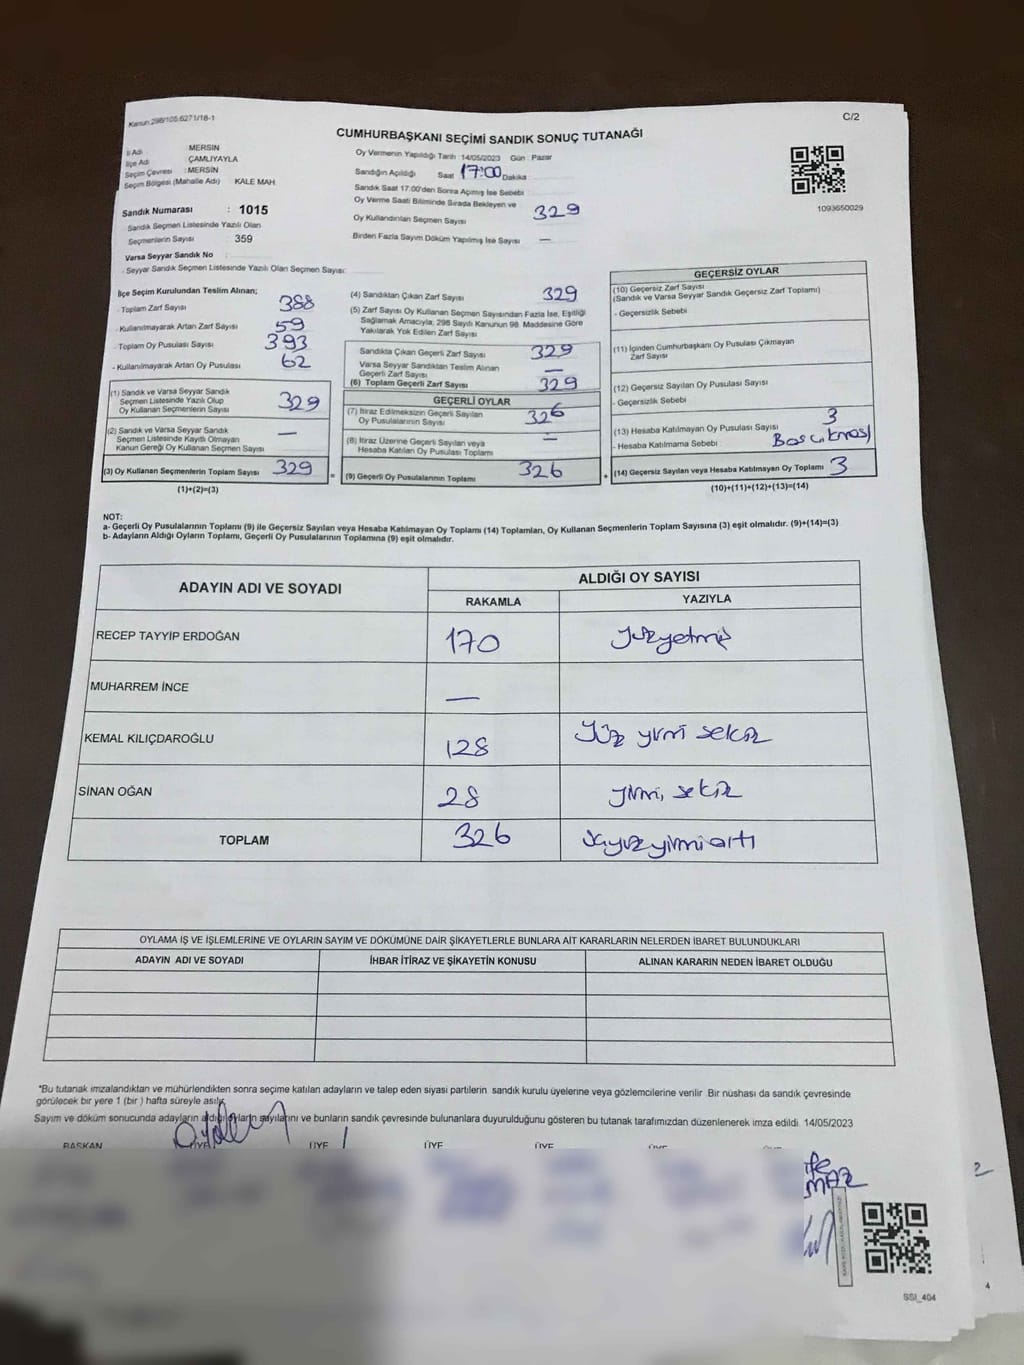 Kanun:298/105:6271/18-1
C/2
CUMHURBAŞKANI SEÇİMİ SANDIK SONUÇ TUTANAĞI
İl Adı : MERSİN
İlçe Adı : ÇAMLIYAYLA
Seçim Çevresi : MERSİN
Seçim Bölgesi (Mahalle Adı) : KALE MAH.
Sandık Numarası : 1015
Sandık Seçmen Listesinde Yazılı Olan
Seçmenlerin Sayısı : 359
Varsa Seyyar Sandık No
- Seyyar Sandık Seçmen Listesinde Yazılı Olan Seçmen Sayısı:
Oy Vermenin Yapıldığı Tarih :14/05/2023 Gün : Pazar
Sandığın Açıldığı Saat 17:00 Dakika
Sandık Saat 17:00'den Sonra Açımış İse Sebebi
Oy Verme Saati Bitiminde Sırada Bekleyen ve
Oy Kullandırılan Seçmen Sayısı 329
Birden Fazla Sayım Döküm Yapılmış İse Sayısı —
1093650029
İlçe Seçim Kurulundan Teslim Alınan;
- Toplam Zarf Sayısı 388
- Kullanılmayarak Artan Zarf Sayısı 59
- Toplam Oy Pusulası Sayısı 393
- Kullanılmayarak Artan Oy Pusulası 62
(1) Sandık ve Varsa Seyyar Sandık
Seçmen Listesinde Yazılı Olup
Oy Kullanan Seçmenlerin Sayısı 329
(2) Sandık ve Varsa Seyyar Sandık
Seçmen Listesinde Kayıtlı Olmayan
Kanun Gereği Oy Kullanan Seçmen Sayısı —
(3) Oy Kullanan Seçmenlerin Toplam Sayısı 329
(1)+(2)=(3)
(4) Sandıktan Çıkan Zarf Sayısı 329
(5) Zarf Sayısı Oy Kullanan Seçmen Sayısından Fazla İse, Eşitliği
Sağlamak Amacıyla, 298 Sayılı Kanunun 98. Maddesine Göre
Yakılarak Yok Edilen Zarf Sayısı
Sandıkta Çıkan Geçerli Zarf Sayısı 329
Varsa Seyyar Sandıktan Teslim Alınan
Geçerli Zarf Sayısı —
(6) Toplam Geçerli Zarf Sayısı 329
GEÇERLİ OYLAR
(7) İtiraz Edilmeksizin Geçerli Sayılan
Oy Pusulalarının Sayısı 326
(8) İtiraz Üzerine Geçerli Sayılan veya
Hesaba Katılan Oy Pusulası Toplamı —
(9) Geçerli Oy Pusulalarının Toplamı 326
GEÇERSİZ OYLAR
(10) Geçersiz Zarf Sayısı
(Sandık ve Varsa Seyyar Sandık Geçersiz Zarf Toplamı)
- Geçersizlik Sebebi
(11) İçinden Cumhurbaşkanı Oy Pusulası Çıkmayan
Zarf Sayısı
(12) Geçersiz Sayılan Oy Pusulası Sayısı
- Geçersizlik Sebebi
(13) Hesaba Katılmayan Oy Pusulası Sayısı 3
- Hesaba Katılmama Sebebi Bos cıkması
(14) Geçersiz Sayılan veya Hesaba Katılmayan Oy Toplamı 3
(10)+(11)+(12)+(13)=(14)
NOT:
a- Geçerli Oy Pusulalarının Toplamı (9) ile Geçersiz Sayılan veya Hesaba Katılmayan Oy Toplamı (14) Toplamları, Oy Kullanan Seçmenlerin Toplam Sayısına (3) eşit olmalıdır. (9)+(14)=(3)
b- Adayların Aldığı Oyların Toplamı, Geçerli Oy Pusulalarının Toplamına (9) eşit olmalıdır.
ADAYIN ADI VE SOYADI ALDIĞI OY SAYISI
RAKAMLA YAZIYLA
RECEP TAYYİP ERDOĞAN 170 Yüzyetmiş
MUHARREM İNCE —
KEMAL KILIÇDAROĞLU 128 Yüz yirmi sekiz
SİNAN OĞAN 28 yirmi, sekiz
TOPLAM 326 üçyüzyirmialtı
OYLAMA İŞ VE İŞLEMLERİNE VE OYLARIN SAYIM VE DÖKÜMÜNE DAİR ŞİKAYETLERLE BUNLARA AİT KARARLARIN NELERDEN İBARET BULUNDUKLARI
ADAYIN ADI VE SOYADI İHBAR İTİRAZ VE ŞİKAYETİN KONUSU ALINAN KARARIN NEDEN İBARET OLDUĞU
*Bu tutanak imzalandıktan ve mühürlendikten sonra seçime katılan adayların ve talep eden siyasi partilerin sandık kurulu üyelerine veya gözlemcilerine verilir. Bir nüshası da sandık çevresinde
görülecek bir yere 1 (bir ) hafta süreyle asılır.
Sayım ve döküm sonucunda adayların aldığı oyların sayılarını ve bunların sandık çevresinde bulunanlara duyurulduğunu gösteren bu tutanak tarafımızdan düzenlenerek imza edildi. 14/05/2023
BAŞKAN ÜYE ÜYE ÜYE ÜYE
SSI_404